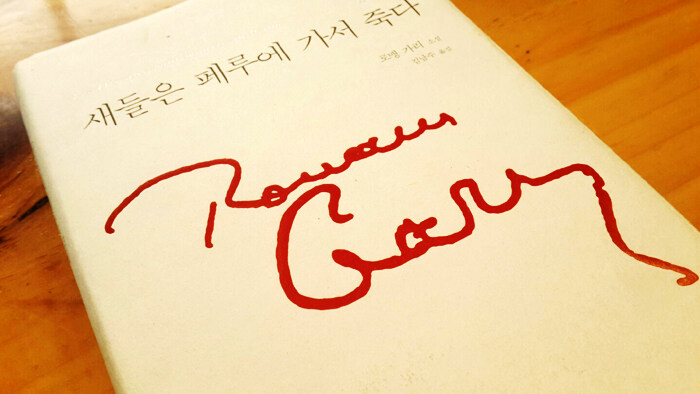 새들은 페루에 가서 죽다
로맹 가리 소설
김남주 옮김
Romain
Gary